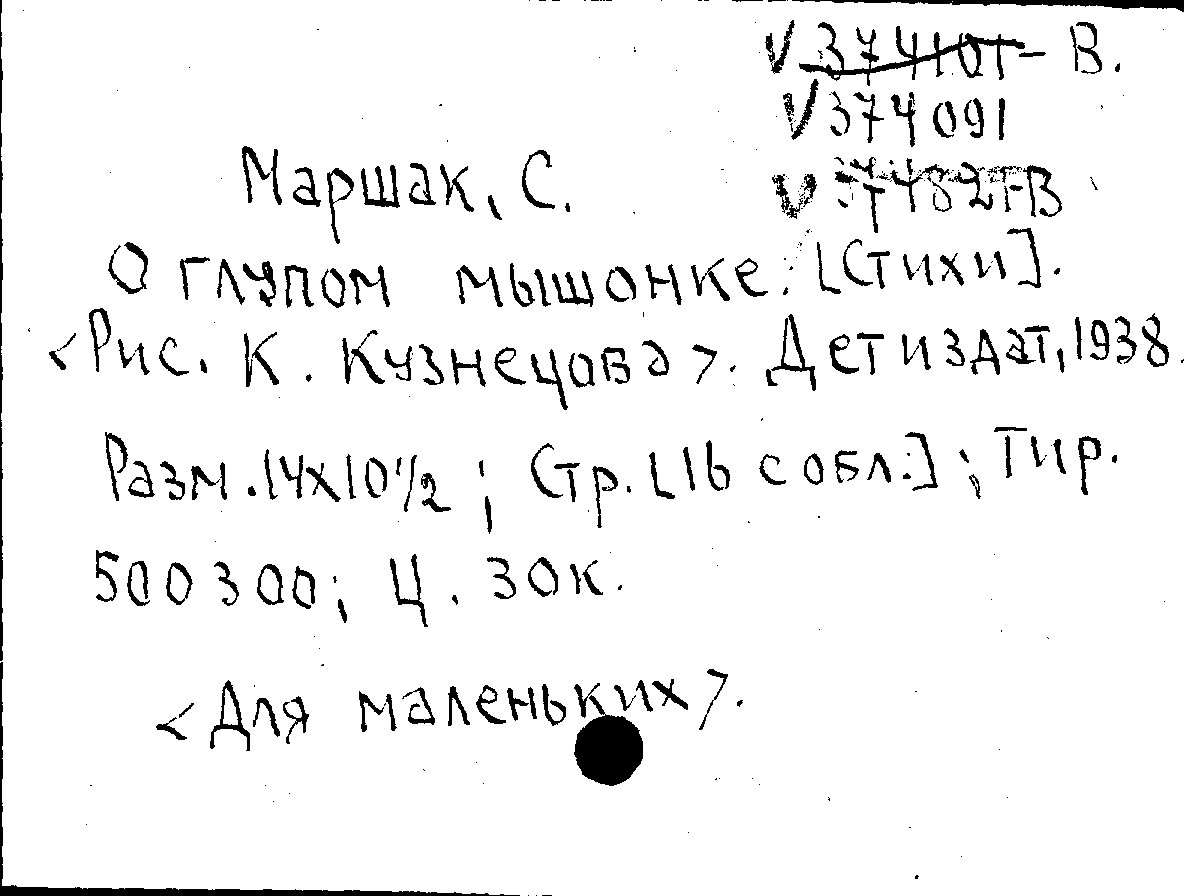 V 374101- В.
V 374091
V 37482-В
Маршак, С.
О глупом мышонке. [Стихи].
<Рис. К. Кузнецова>. Детиздат, 1938.
Разм. 14х10 1/2; Стр. [16 с обл.]; Тир.
500300; Ц. 30к.
<Для маленьких>.